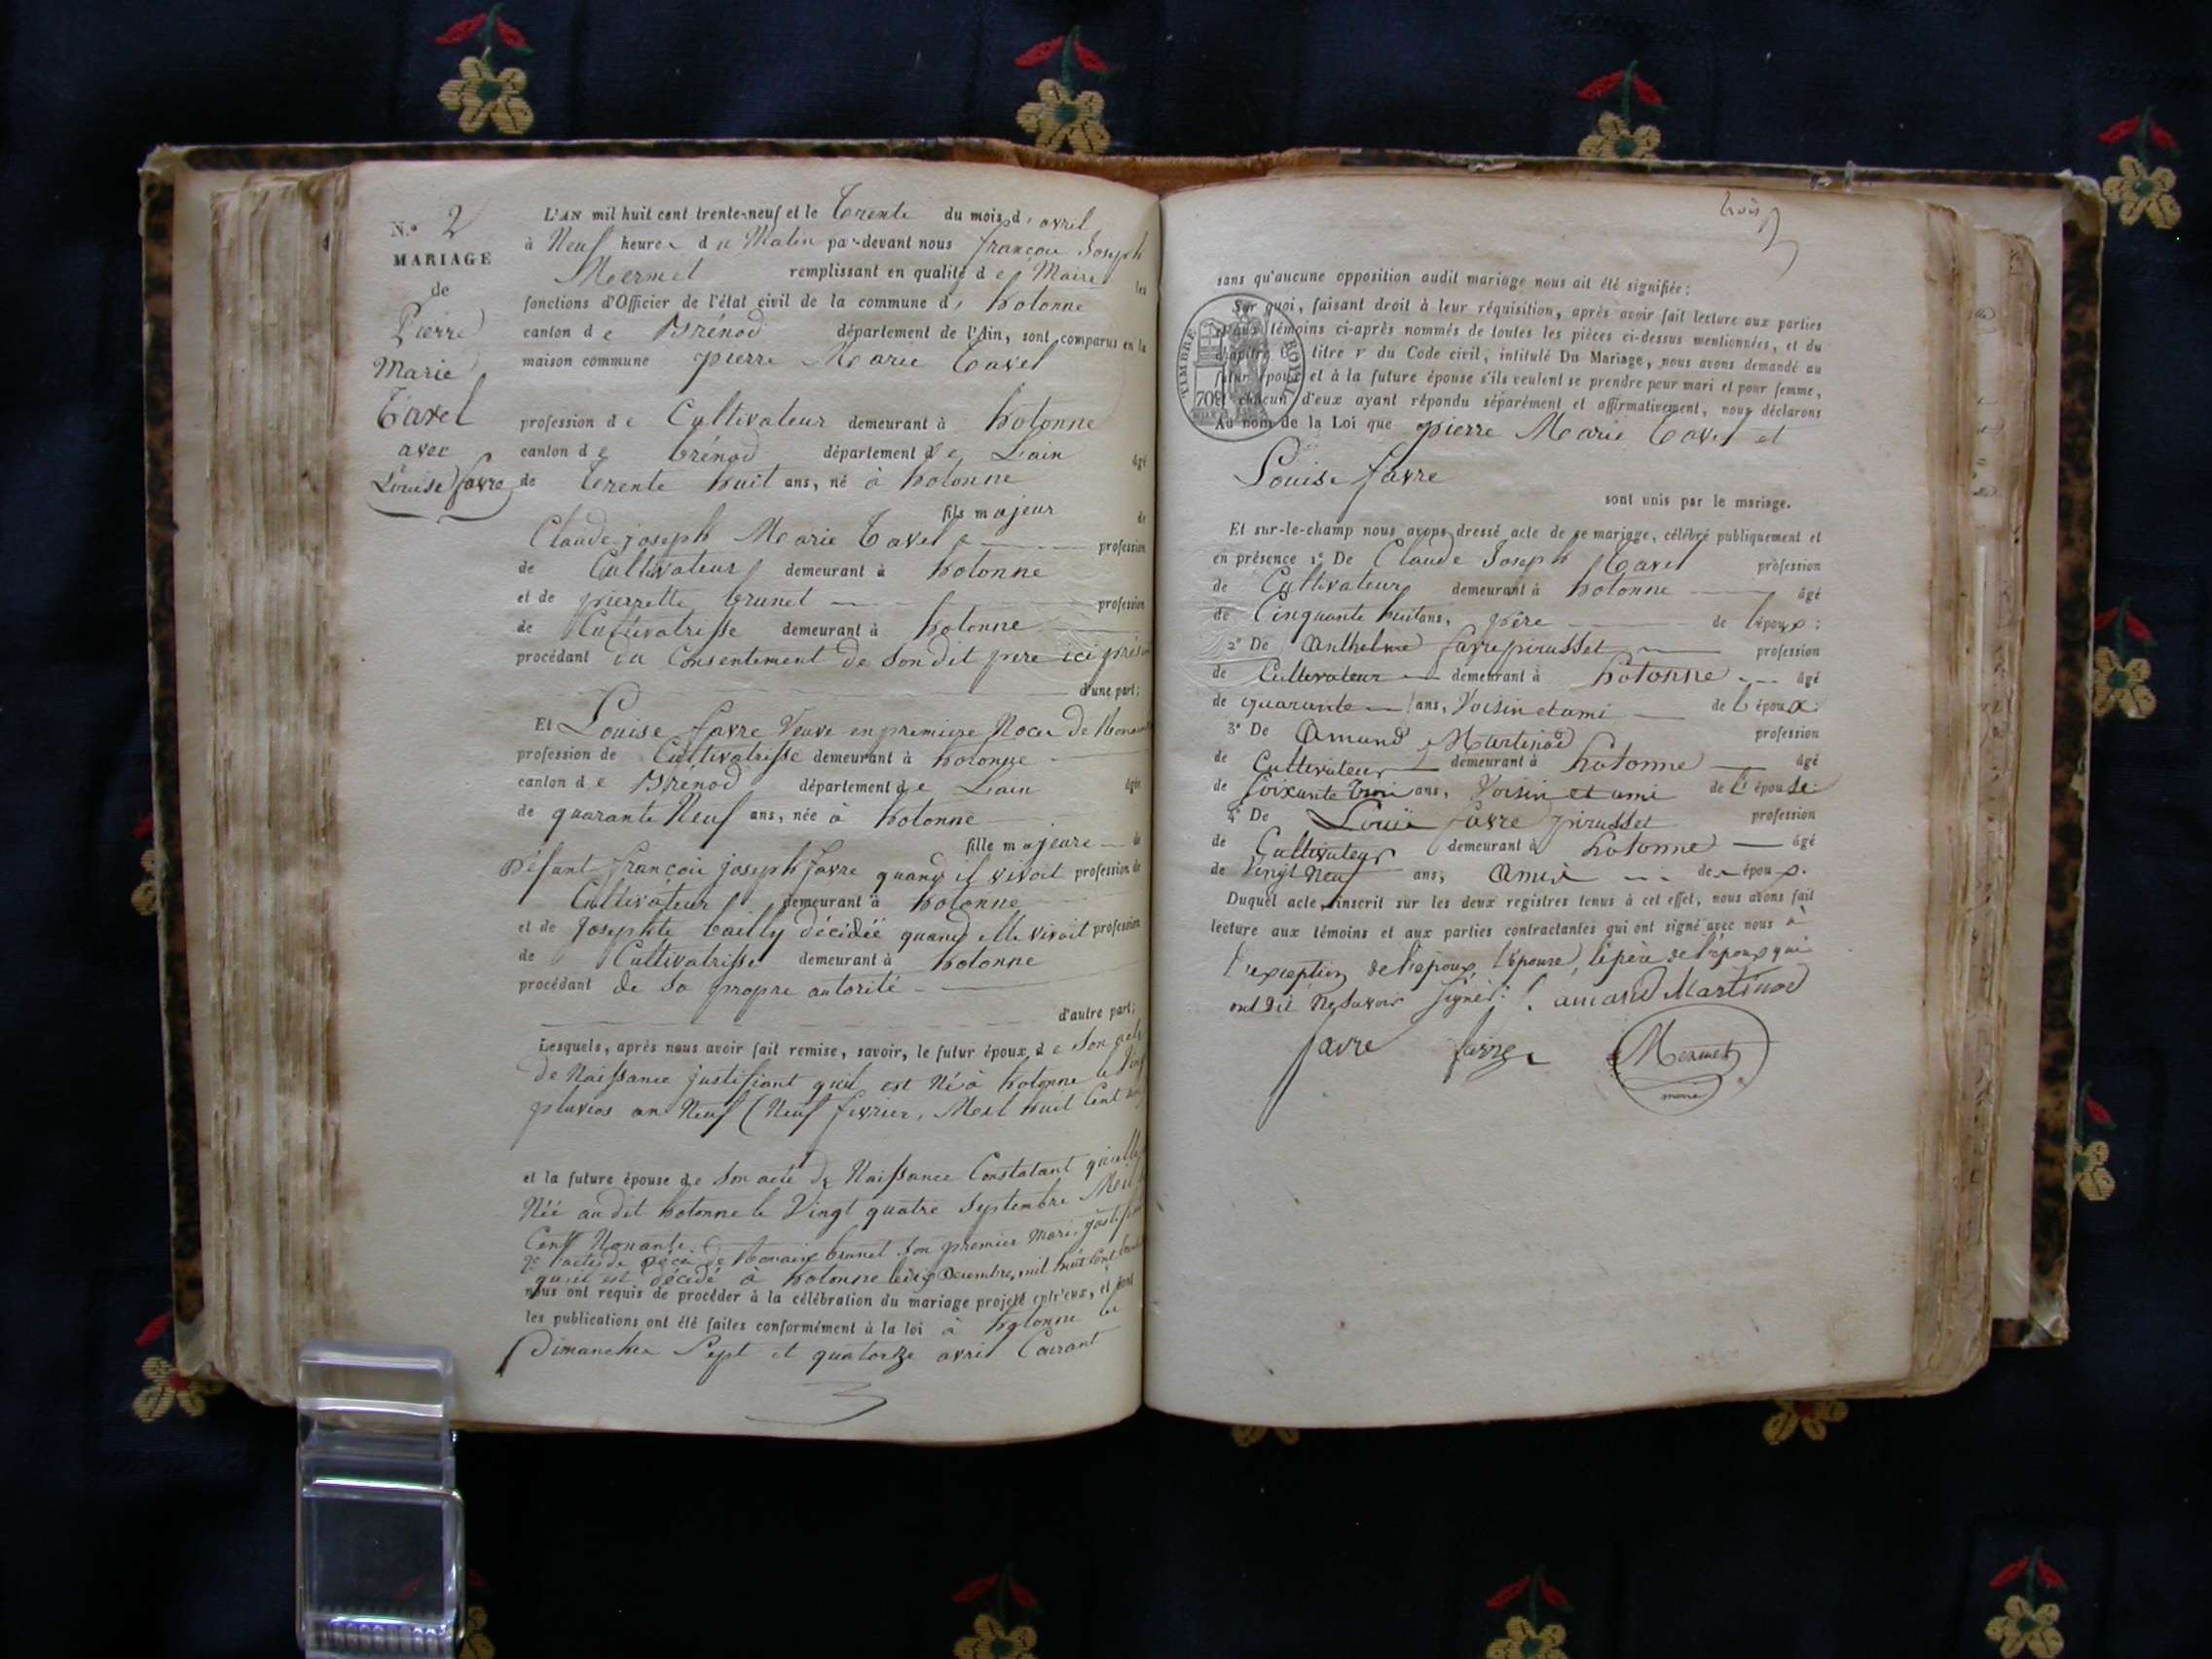 N.° 2
MARIAGE
de
Pierre
Marie
Tavel
avec
Louise favre
L'AN mil huit cent trente-neuf et le Trente du mois d' avril
à Neuf heures du Matin par-devant nous françois Joseph
Mermet remplissant en qualité de Maire les
fonctions d'Officier de l'état civil de la commune d' hotonne
canton de Brénod département de l'Ain, sont comparus en la
maison commune pierre Marie Tavel
profession de Cultivateur demeurant à hotonne
canton de brénod département de Lain âgé
de trente huit ans, né à hotonne
fils majeur de
Claude joseph Marie Tavel profession
de Cultivateur demeurant à hotonne
et de pierrette brunet profession
de Cultivatrisse demeurant à hotonne
procédant du Consentement de Son dit pere ici
d'une part;
Et Louise favre Veuve en premiere Noce de
profession de Cultivatrisse demeurant à hotonne
canton de Brénod département de Lain âgée
de quarante Neuf ans, née à hotonne
fille majeure de
Défunt françois joseph favre quand il vivoit profession de
Cultivateur demeurant à hotonne
et de Josephte bailly décidéé quand elle vivoit profession
de Cultivatrisse demeurant à hotonne
procédant de Sa propre autorité
d'autre part;
Lesquels, après nous avoir fait remise, savoir, le futur époux, de Son acte
de Naissance justifiant quil est Né à hotonne le
pluvios an Neuf (Neuf fevrier, Mil huit Cent
et la future épouse de Son acte de Naissance Constatant quelle
Néé au dit hotonne le Vingt quatre Septembre Mil
Cent Nonante.
de Romain brunet Son premier Mari
qu'il est décédé à hotonne le Decembre, mil huit Cent
nous ont requis de procéder à la célébration du mariage projeté entr'eux, et dont
les publications ont été faites conformément à la loi à hotonne les
Dimanches Sept et quatorze avril Courant
trois
sans qu'aucune opposition audit mariage nous ait été signifiée;
Sur quoi, faisant droit à leur réquisition, après avoir fait lecture aux parties
et aux témoins ci-après nommés de toutes les pièces ci-dessus mentionnées, et du
chapitre 6 titre v du Code civil, intitulé Du Mariage, nous avons demandé au
futur époux et à la future épouse s'ils veulent se prendre pour mari et pour femme,
chacun d'eux ayant répondu séparément et affirmativement, nous déclarons
Au nom de la Loi que pierre Marie Tavel et
TIMBRE ROYAL
70c
Louise favre
sont unis par le mariage.
Et sur-le-champ nous avons dressé acte de ce mariage, célébré publiquement et
en présence 1° De Claude Joseph Tavel profession
de Cultivateur demeurant à hotonne âgé
de Cinquante huit ans, père de l'époux;
2° De Anthelme favre pirusset profession
de Cultivateur demeurant à hotonne âgé
de quarante ans, Voisin et ami de l'époux.
3° De Amand Martinod profession
de Cultivateur demeurant à hotonne âgé
de Soixante trois ans, Voisin et ami de l'épouse.
4° De Louis favre pirusset profession
de Cultivateur demeurant à hotonne âgé
de Vingt Neuf ans; Amis des époux.
Duquel acte, inscrit sur les deux registres tenus à cet effet, nous avons fait
lecture aux témoins et aux parties contractantes qui ont signé avec nous à
l'exception de l'époux, l'épouse, le père de l'époux qui
ont dit ne Savoir Signer. amand Martinod
favre favre Mermet
maire